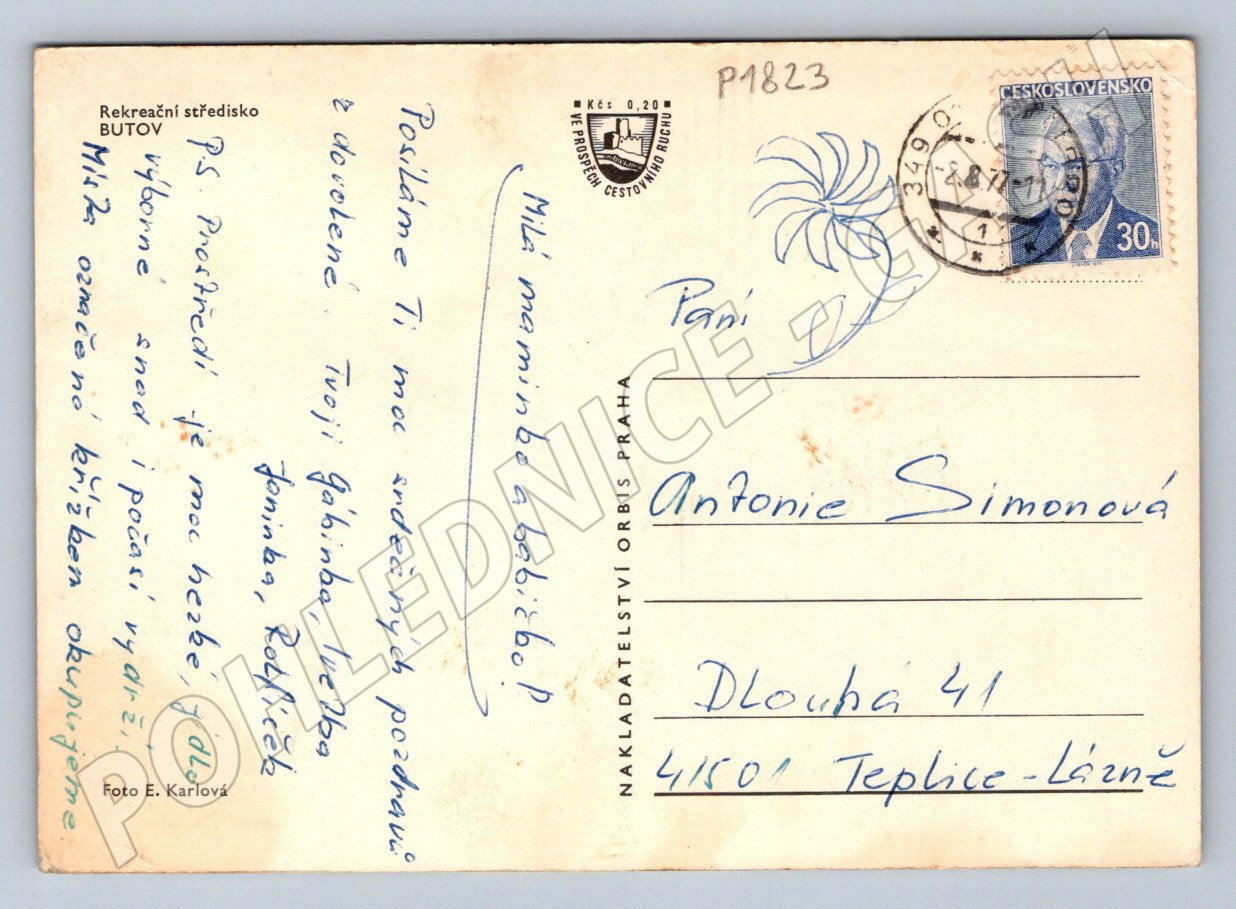 Rekreační středisko
BUTOV
P1823
Kčs 0,20
VE PROSPĚCH CESTOVNÍHO RUCHU
ČESKOSLOVENSKO
30h
349 0
-2.8.77-
1
Milá maminko a babičko!
Posíláme Ti moc srdečných pozdravů
z dovolené. Tvoji Gábinka, Ivetka
Toninka,
PS. Prostředí je moc hezké, jídlo
výborné snad i počasí vydrží.
Místa označená křížkem okupujeme
Foto E. Karlová
NAKLADATELSTVÍ ORBIS PRAHA
Paní
Antonie Simonová
Dlouhá 41
41501 Teplice-Lázně
POHLEDNICE -